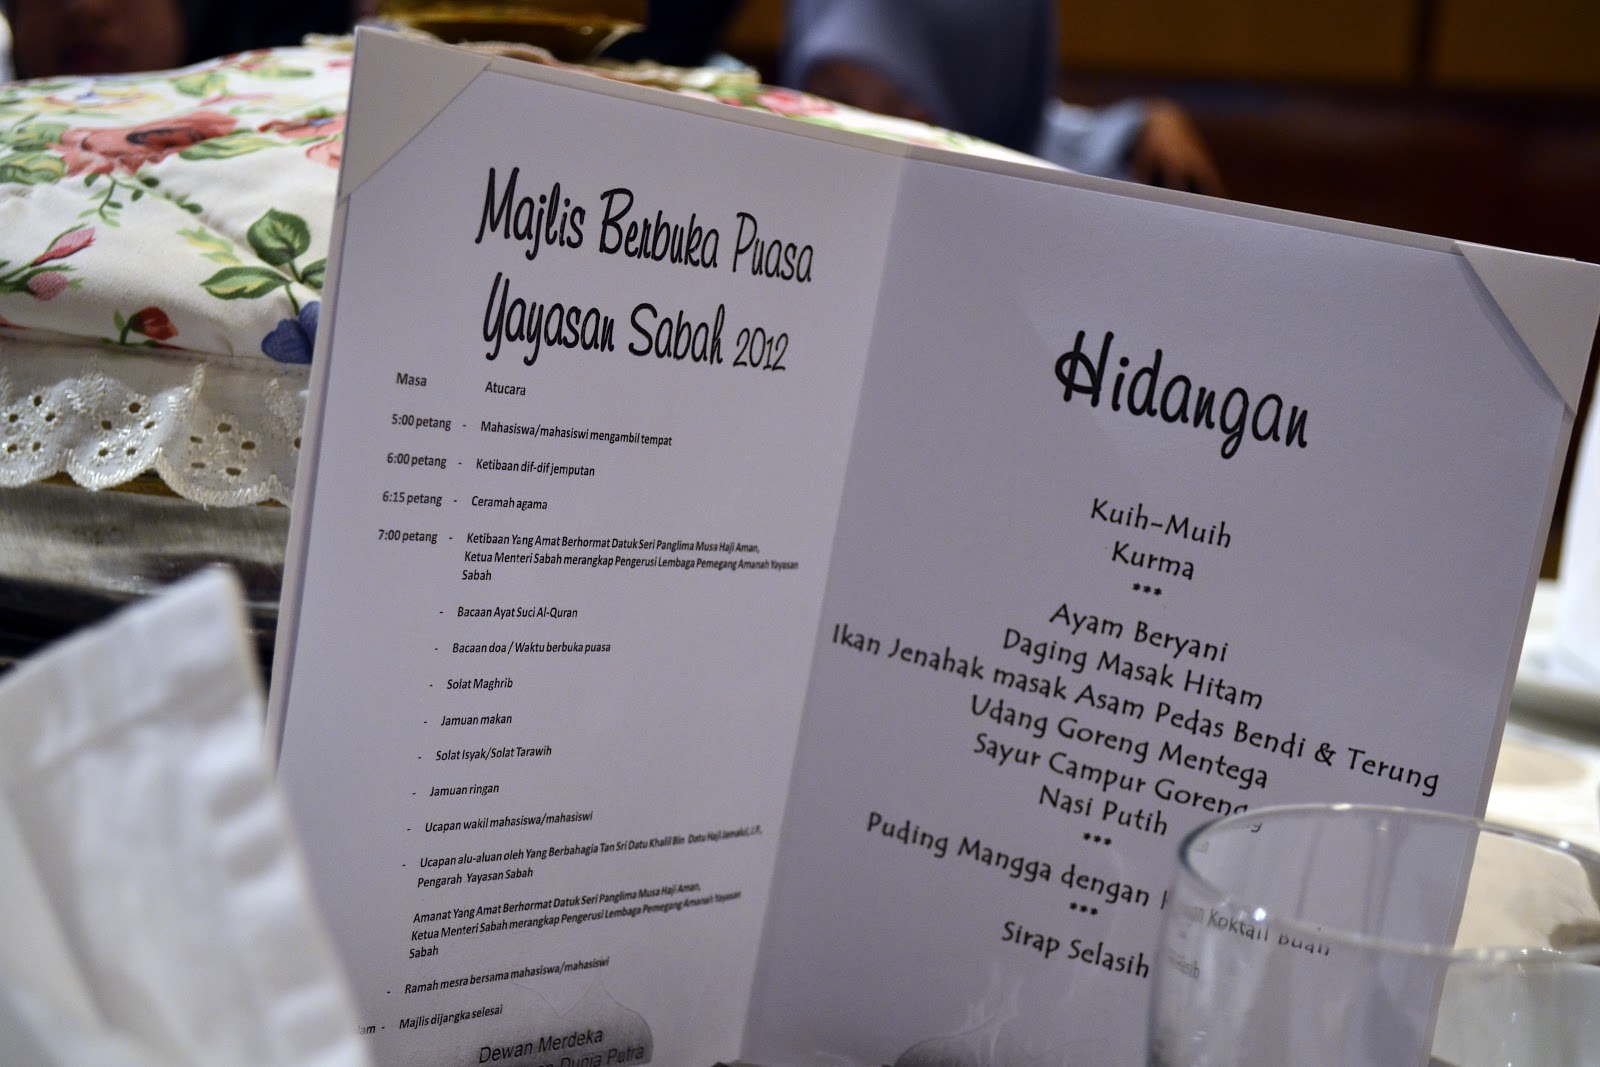 Majlis Berbuka Puasa
Yayasan Sabah 2012
Masa Atucara
5:00 petang - Mahasiswa/mahasiswi mengambil tempat
6:00 petang - Ketibaan dif-dif jemputan
6:15 petang - Ceramah agama
7:00 petang - Ketibaan Yang Amat Berhormat Datuk Seri Panglima Musa Haji Aman,
Ketua Menteri Sabah merangkap Pengerusi Lembaga Pemegang Amanah Yayasan
Sabah
- Bacaan Ayat Suci Al-Quran
- Bacaan doa / Waktu berbuka puasa
- Solat Maghrib
- Jamuan makan
- Solat Isyak/Solat Tarawih
- Jamuan ringan
- Ucapan wakil mahasiswa/mahasiswi
- Ucapan alu-aluan oleh Yang Berbahagia Tan Sri Datu Khalil Bin Datu Haji Jamalul, J.P,
Pengarah Yayasan Sabah
Amanat Yang Amat Berhormat Datuk Seri Panglima Musa Haji Aman,
Ketua Menteri Sabah merangkap Pengerusi Lembaga Pemegang Amanah Yayasan
Sabah
- Ramah mesra bersama mahasiswa/mahasiswi
- Majlis dijangka selesai
Dewan Merdeka
Dunia Putra
Hidangan
Kuih-Muih
Kurma
***
Ayam Beryani
Daging Masak Hitam
Ikan Jenahak masak Asam Pedas Bendi & Terung
Udang Goreng Mentega
Sayur Campur Goreng
Nasi Putih
***
Puding Mangga dengan Koktail Buah
***
Sirap Selasih